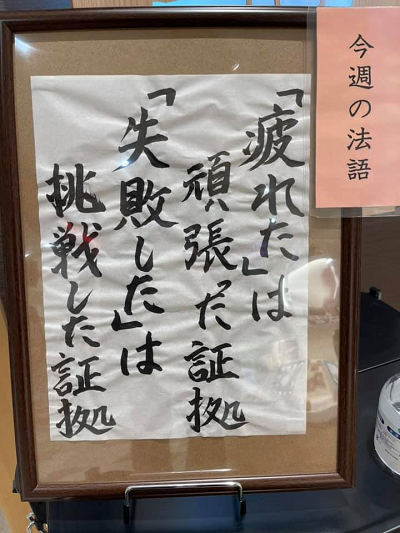 今週の法語
「疲れた」は
頑張った証拠
「失敗した」は
挑戦した証拠